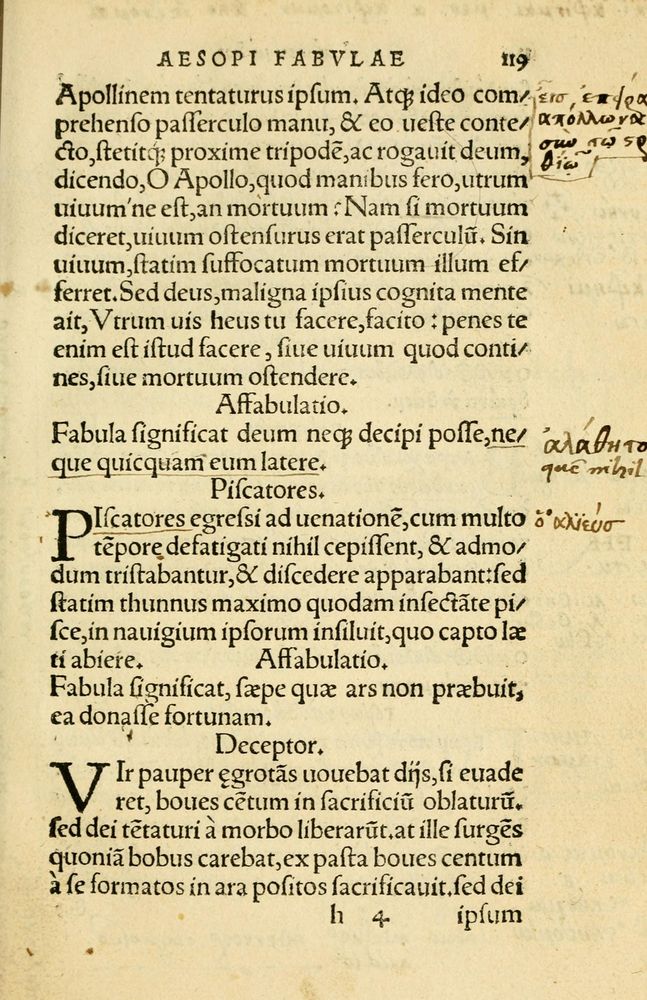 AESOPI FABVLAE 119
Apollinem tentaturus ipsum. Atq; ideo com/
prehenso passerculo manu, & eo ueste conte/
cto, stetitq; proxime tripodē, ac rogauit deum,
dicendo, O Apollo, quod manibus fero, utrum
uiuum'ne est, an mortuum ? Nam si mortuum
diceret, uiuum ostensurus erat passerculū. Sin
uiuum, statim suffocatum mortuum illum ef/
ferret. Sed deus, maligna ipsius cognita mente
ait, Vtrum uis heus tu facere, facito : penes te
enim est istud facere, siue uiuum quod conti/
nes, siue mortuum ostendere.
Affabulatio.
Fabula significat deum neq; decipi posse, ne/
que quicquam eum latere.
ἀλάθητο
que nihil
Piscatores.
PIscatores egressi ad uenationē, cum multo
ὁ ἁλιεύσ
tēpore defatigati nihil cepissent, & admo/
dum tristabantur, & discedere apparabant: sed
statim thunnus maximo quodam insectāte pi/
sce, in nauigium ipsorum insiluit, quo capto læ
ti abiere. Affabulatio.
Fabula significat, sæpe quæ ars non præbuit,
ea donasse fortunam.
Deceptor.
VIr pauper ęgrotās uouebat dijs, si euade
ret, boues cētum in sacrificiū oblaturū.
sed dei tētaturi à morbo liberarūt. at ille surgēs
quoniā bobus carebat, ex pasta boues centum
à se formatos in ara positos sacrificauit. sed dei
h 4 ipsum